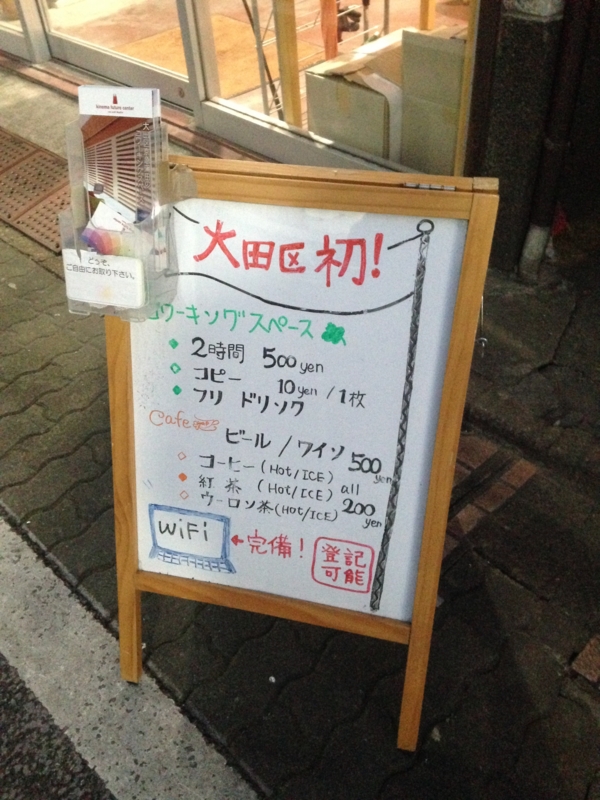 どうぞ、
ご自由にお取り下さい。
大田区初!
コワーキングスペース
2時間 500yen
コピー 10yen / 1枚
フリードリンク
Cafe
ビール / ワイン 500yen
コーヒー (Hot/ICE)
紅茶 (Hot/ICE) all
ウーロン茶 (Hot/ICE) 200yen
WiFi ←完備!
登記
可能